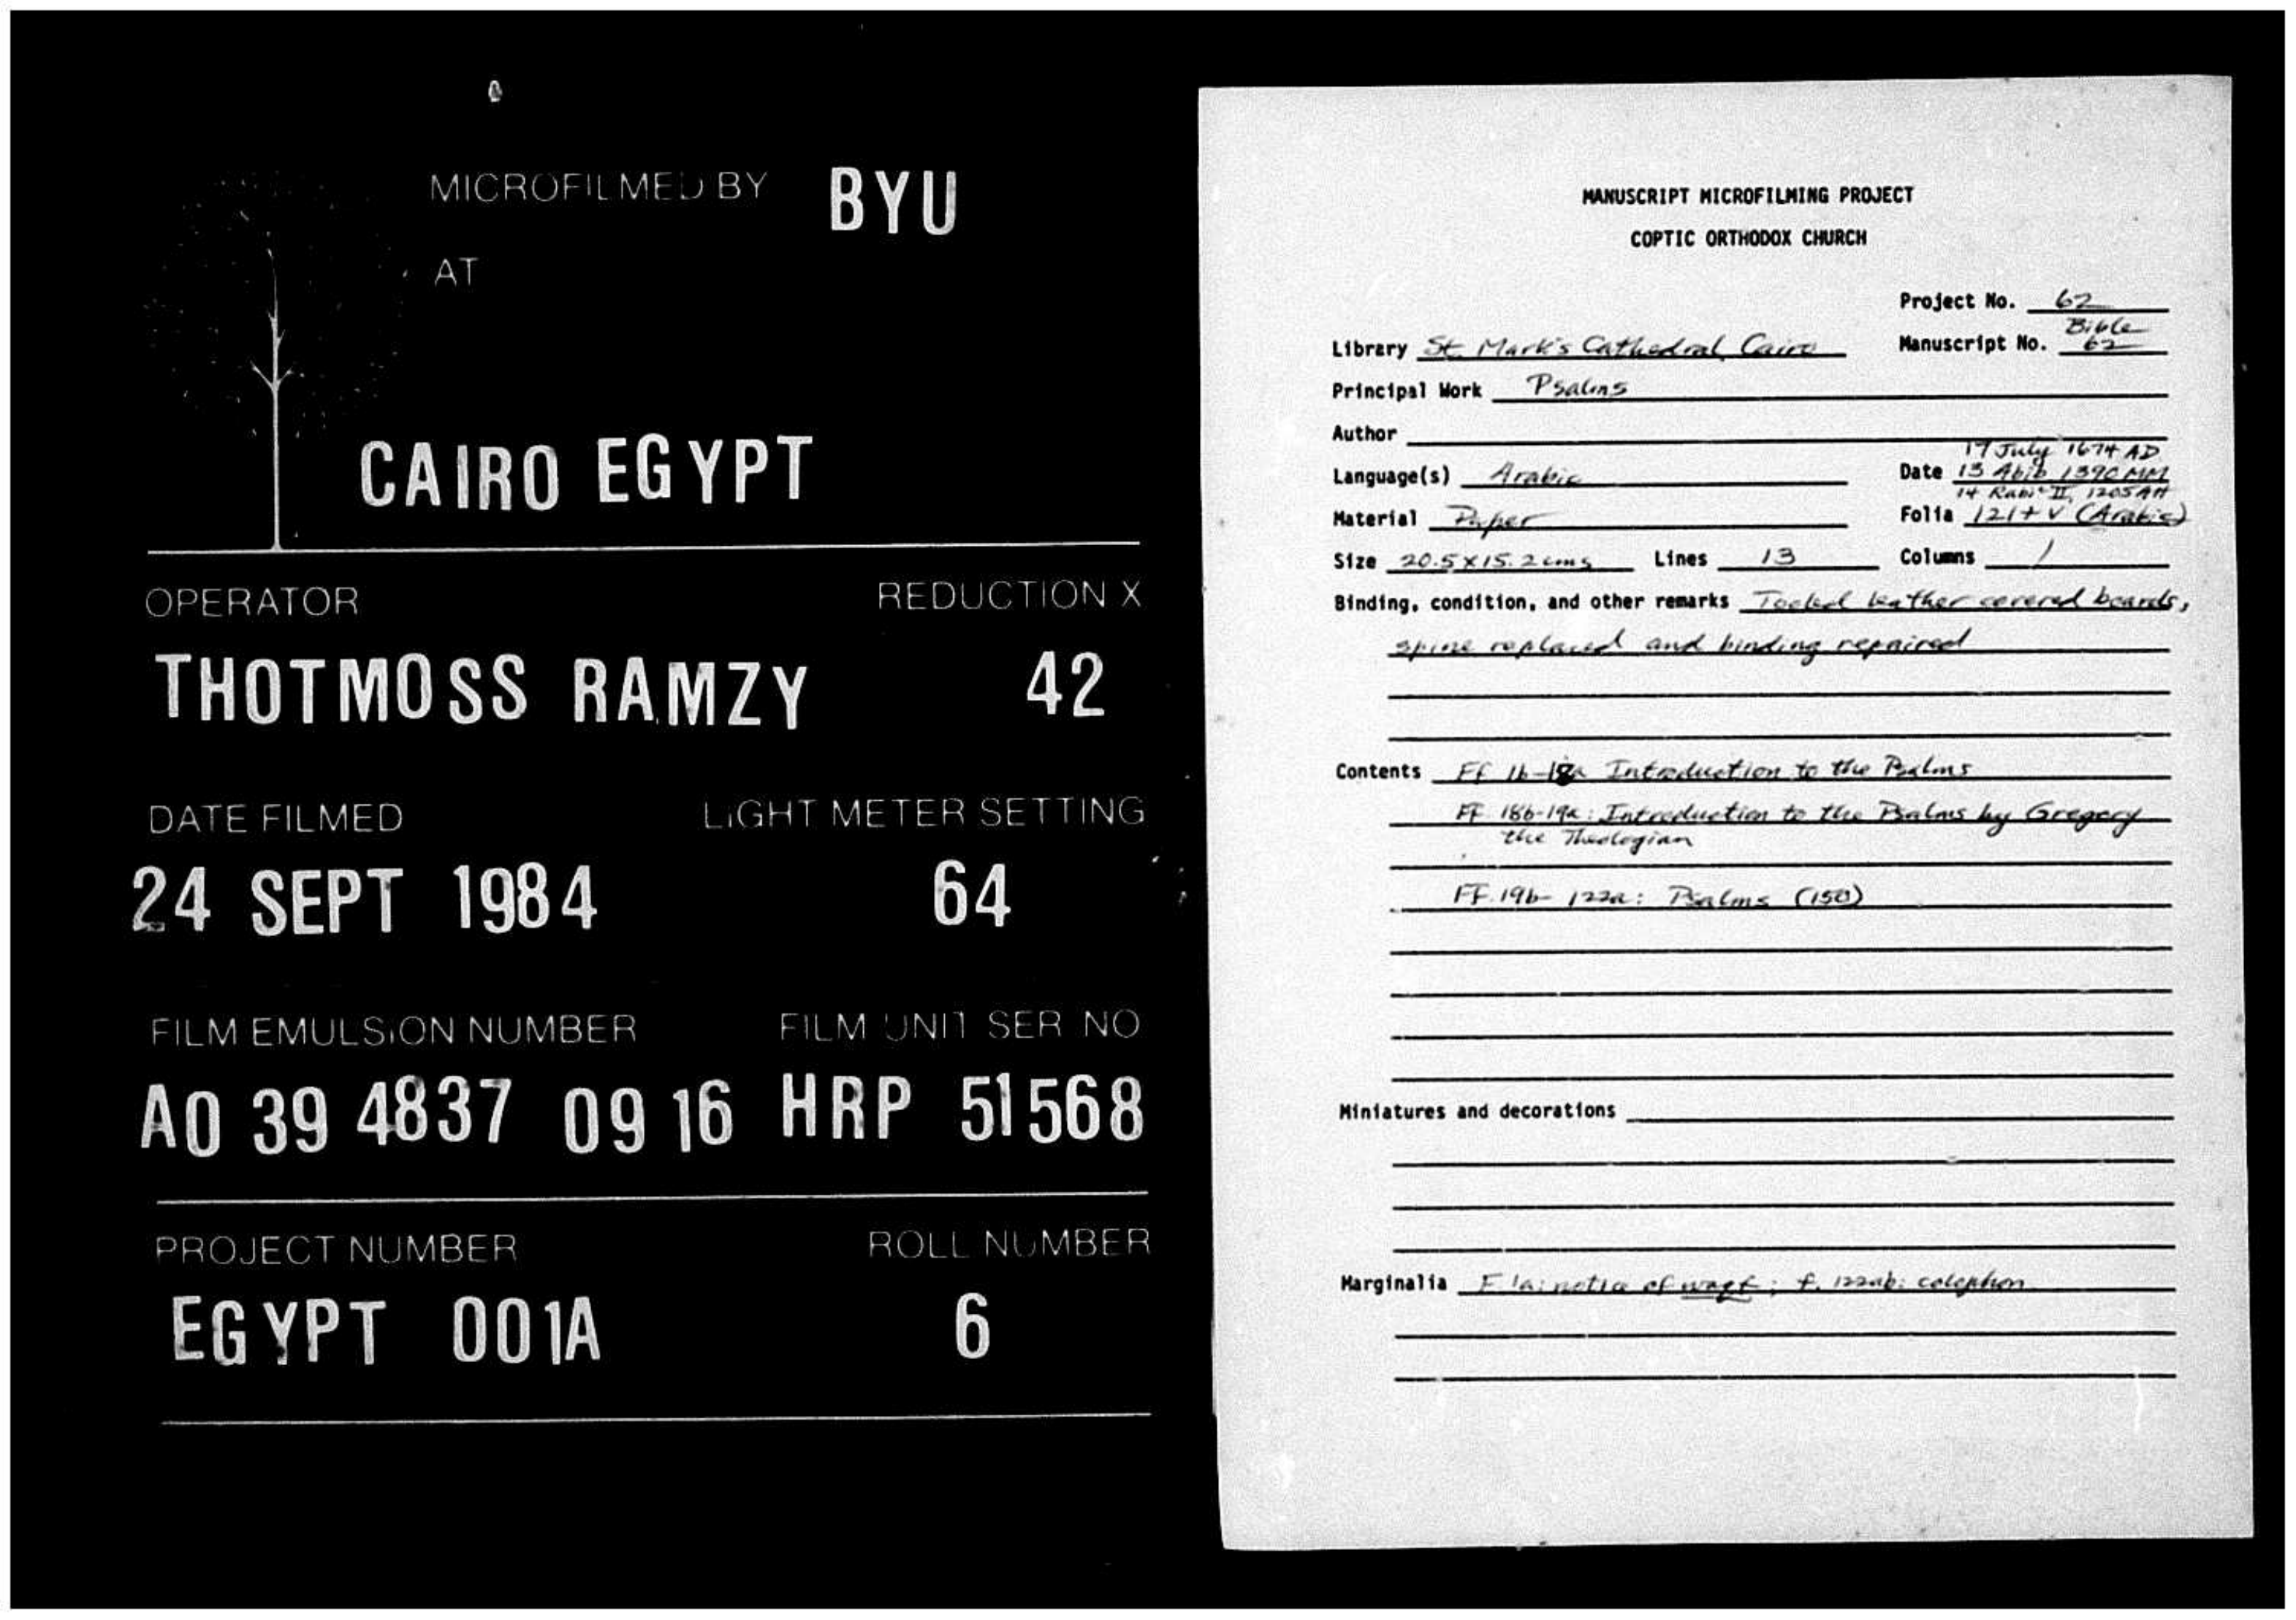 MICROFILMED BY BYU
AT
CAIRO EGYPT
OPERATOR REDUCTION X
THOTMOSS RAMZY 42
DATE FILMED LIGHT METER SETTING
24 SEPT 1984 64
FILM EMULSION NUMBER FILM UNIT SER NO
A0 39 4837 09 16 HRP 51568
PROJECT NUMBER ROLL NUMBER
EGYPT 001A 6
MANUSCRIPT MICROFILMING PROJECT
COPTIC ORTHODOX CHURCH
Project No. 62
Library St. Mark's Cathedral, Cairo Manuscript No. Bible 62
Principal Work Psalms
Author
17 July 1674 AD
Language(s) Arabic Date 13 Abib 1390 MM
14 Rabi' II, 1205 AH
Material Paper Folia 121 + V (Arabic)
Size 20.5 x 15.2 cms Lines 13 Columns 1
Binding, condition, and other remarks Tooled leather covered boards,
spine replaced and binding repaired
Contents Ff 1b-18a Introduction to the Psalms
FF 18b-19a: Introduction to the Psalms by Gregory
the Theologian
FF. 19b-122a: Psalms (150)
Miniatures and decorations
Marginalia F. 1a: notice of waqf; f. 122ab: colophon